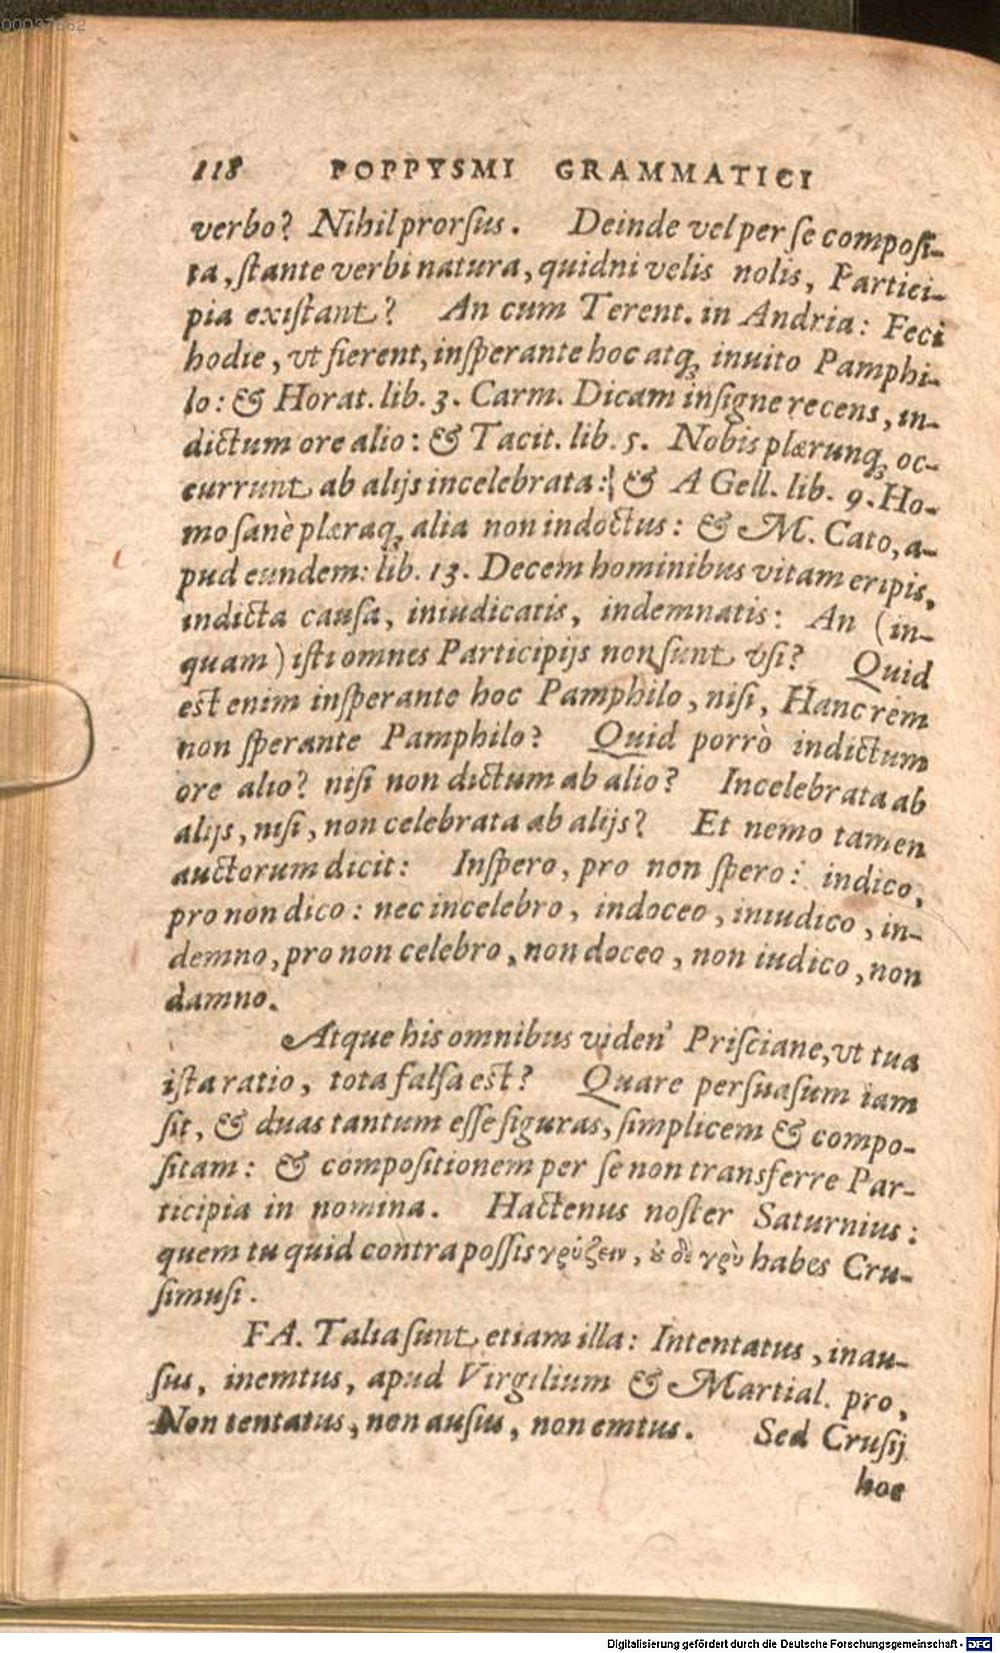 00037662
118 POPPYSMI GRAMMATICI
verbo? Nihil prorſus. Deinde vel per ſe compoſi-
ta, ſtante verbi natura, quidni velis nolis, Partici-
pia exiſtant? An cum Terent. in Andria: Feci
hodie, vt fierent, inſperante hoc atq́; inuito Pamphi-
lo: & Horat. lib. 3. Carm. Dicam inſigne recens, in-
dictum ore alio: & Tacit. lib. 5. Nobis plærunq́; oc-
currunt ab alijs incelebrata: & A Gell. lib. 9. Ho-
mo ſanè plæraq́; alia non indoctus: & M. Cato, a-
pud eundem: lib. 13. Decem hominibus vitam eripis,
indicta cauſa, iniudicatis, indemnatis: An (in-
quam) iſti omnes Participijs non ſunt vſi? Quid
est enim inſperante hoc Pamphilo, niſi, Hanc rem
non ſperante Pamphilo? Quid porrò indictum
ore alio? niſi non dictum ab alio? Incelebrata ab
alijs, niſi, non celebrata ab alijs? Et nemo tamen
auctorum dicit: Inſpero, pro non ſpero: indico,
pro non dico: nec incelebro, indoceo, iniudico, in-
demno, pro non celebro, non doceo, non iudico, non
damno.
Atque his omnibus viden' Priſciane, vt tua
iſta ratio, tota falſa est? Quare perſuaſum iam
ſit, & duas tantum eſſe figuras, ſimplicem & compo-
ſitam: & compoſitionem per ſe non transferre Par-
ticipia in nomina. Hactenus noſter Saturnius:
quem tu quid contra poſſis γρύζειν, ȣ̓δὲ γρὺ habes Cru-
ſi mi ſi.
FA. Talia ſunt etiam illa: Intentatus, inau-
ſus, inemtus, apud Virgilium & Martial. pro,
Non tentatus, non auſus, non emtus. Sed Cruſij
hoc
Digitalisierung gefördert durch die Deutsche Forschungsgemeinschaft - DFG